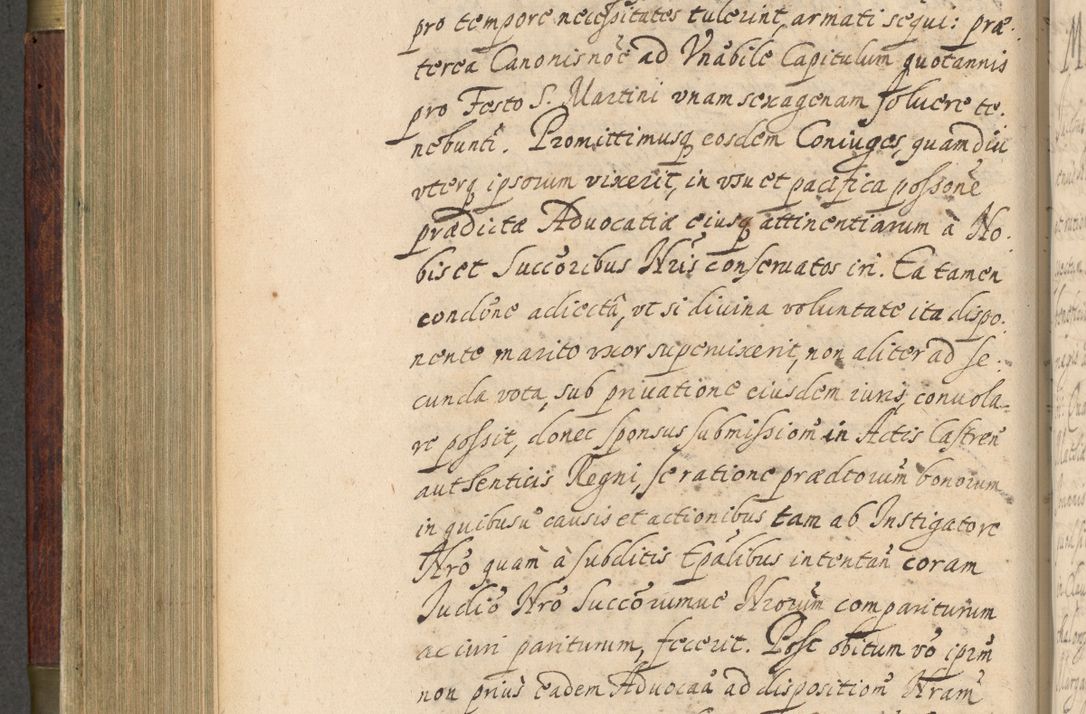 pro tempore necessitates tulerint armati sequi: præ:
terea Canonis noĕ ad Vnăbile Capitulum quotannis
pro Festo S. Martini vnam sexagenam soluere te:
nebunť. Promittimusq eosdem Coniuges, quamdiu
vterq ipsorum vixerit, in vsu et pacifica possone
prædictæ Aduocatiæ eiusq attinentiarum à No:
bis et Succoribus Nris conseruatos iri. Ea tamen
condone adiectâ, vt si diuina voluntate ita dispo:
nente marito vxor superuixerit, non aliter ad se:
cunda vota, sub priuatione eiusdem iuris, conuola=
re possit, donec sponsus submissiom in Actis Castren
authenticis Regni, se ratione prædtorum bonorum
in quibusu causis et actionibus tam ab Instigatore
Nro quam à subditis Epalibus intentan coram
Iudio Nro Succorumue Nrorum compariturum
ac iuri pariturum, fecerit. Post obitum vo iprm
non prius eadem Aduocaa ad dispositiom Nram